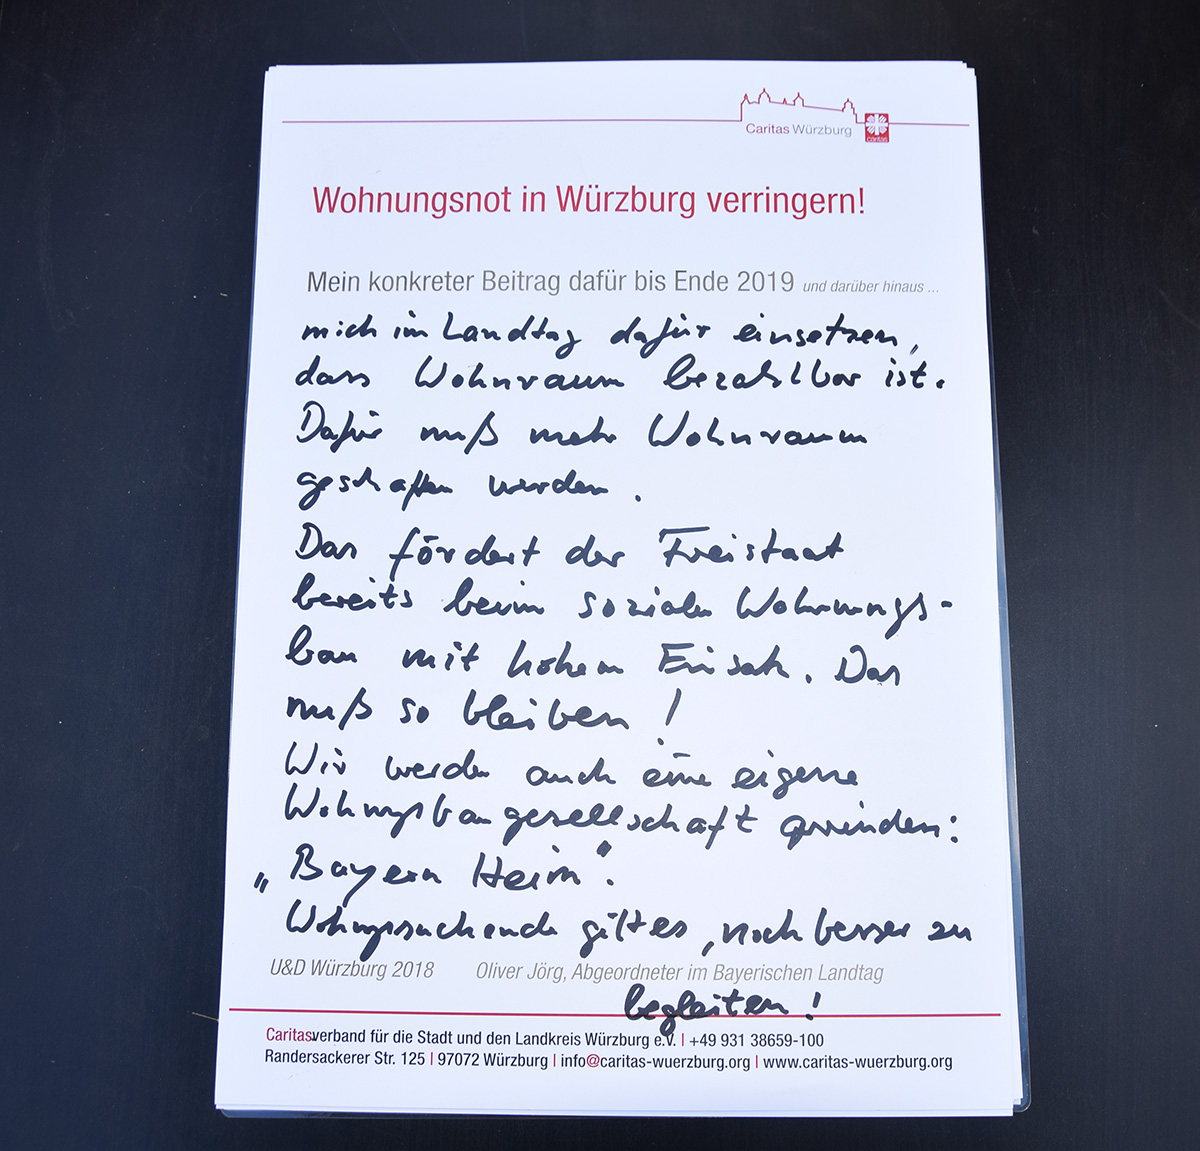 Caritas Würzburg
caritas
Wohnungsnot in Würzburg verringern!
Mein konkreter Beitrag dafür bis Ende 2019 und darüber hinaus ...
mich im Landtag dafür einsetzen,
dass Wohnraum bezahlbar ist.
Dafür muß mehr Wohnraum
geschaffen werden.
Das fördert der Freistaat
bereits beim sozialen Wohnungs-
bau mit hohem Einsatz. Das
muß so bleiben!
Wir werden auch eine eigene
Wohnungsbaugesellschaft gründen:
„Bayern Heim".
Wohnungssuchende gilt es, noch besser zu
U&D Würzburg 2018 Oliver Jörg, Abgeordneter im Bayerischen Landtag
begleiten!
Caritasverband für die Stadt und den Landkreis Würzburg e.V. | +49 931 38659-100
Randersackerer Str. 125 | 97072 Würzburg | info@caritas-wuerzburg.org | www.caritas-wuerzburg.org